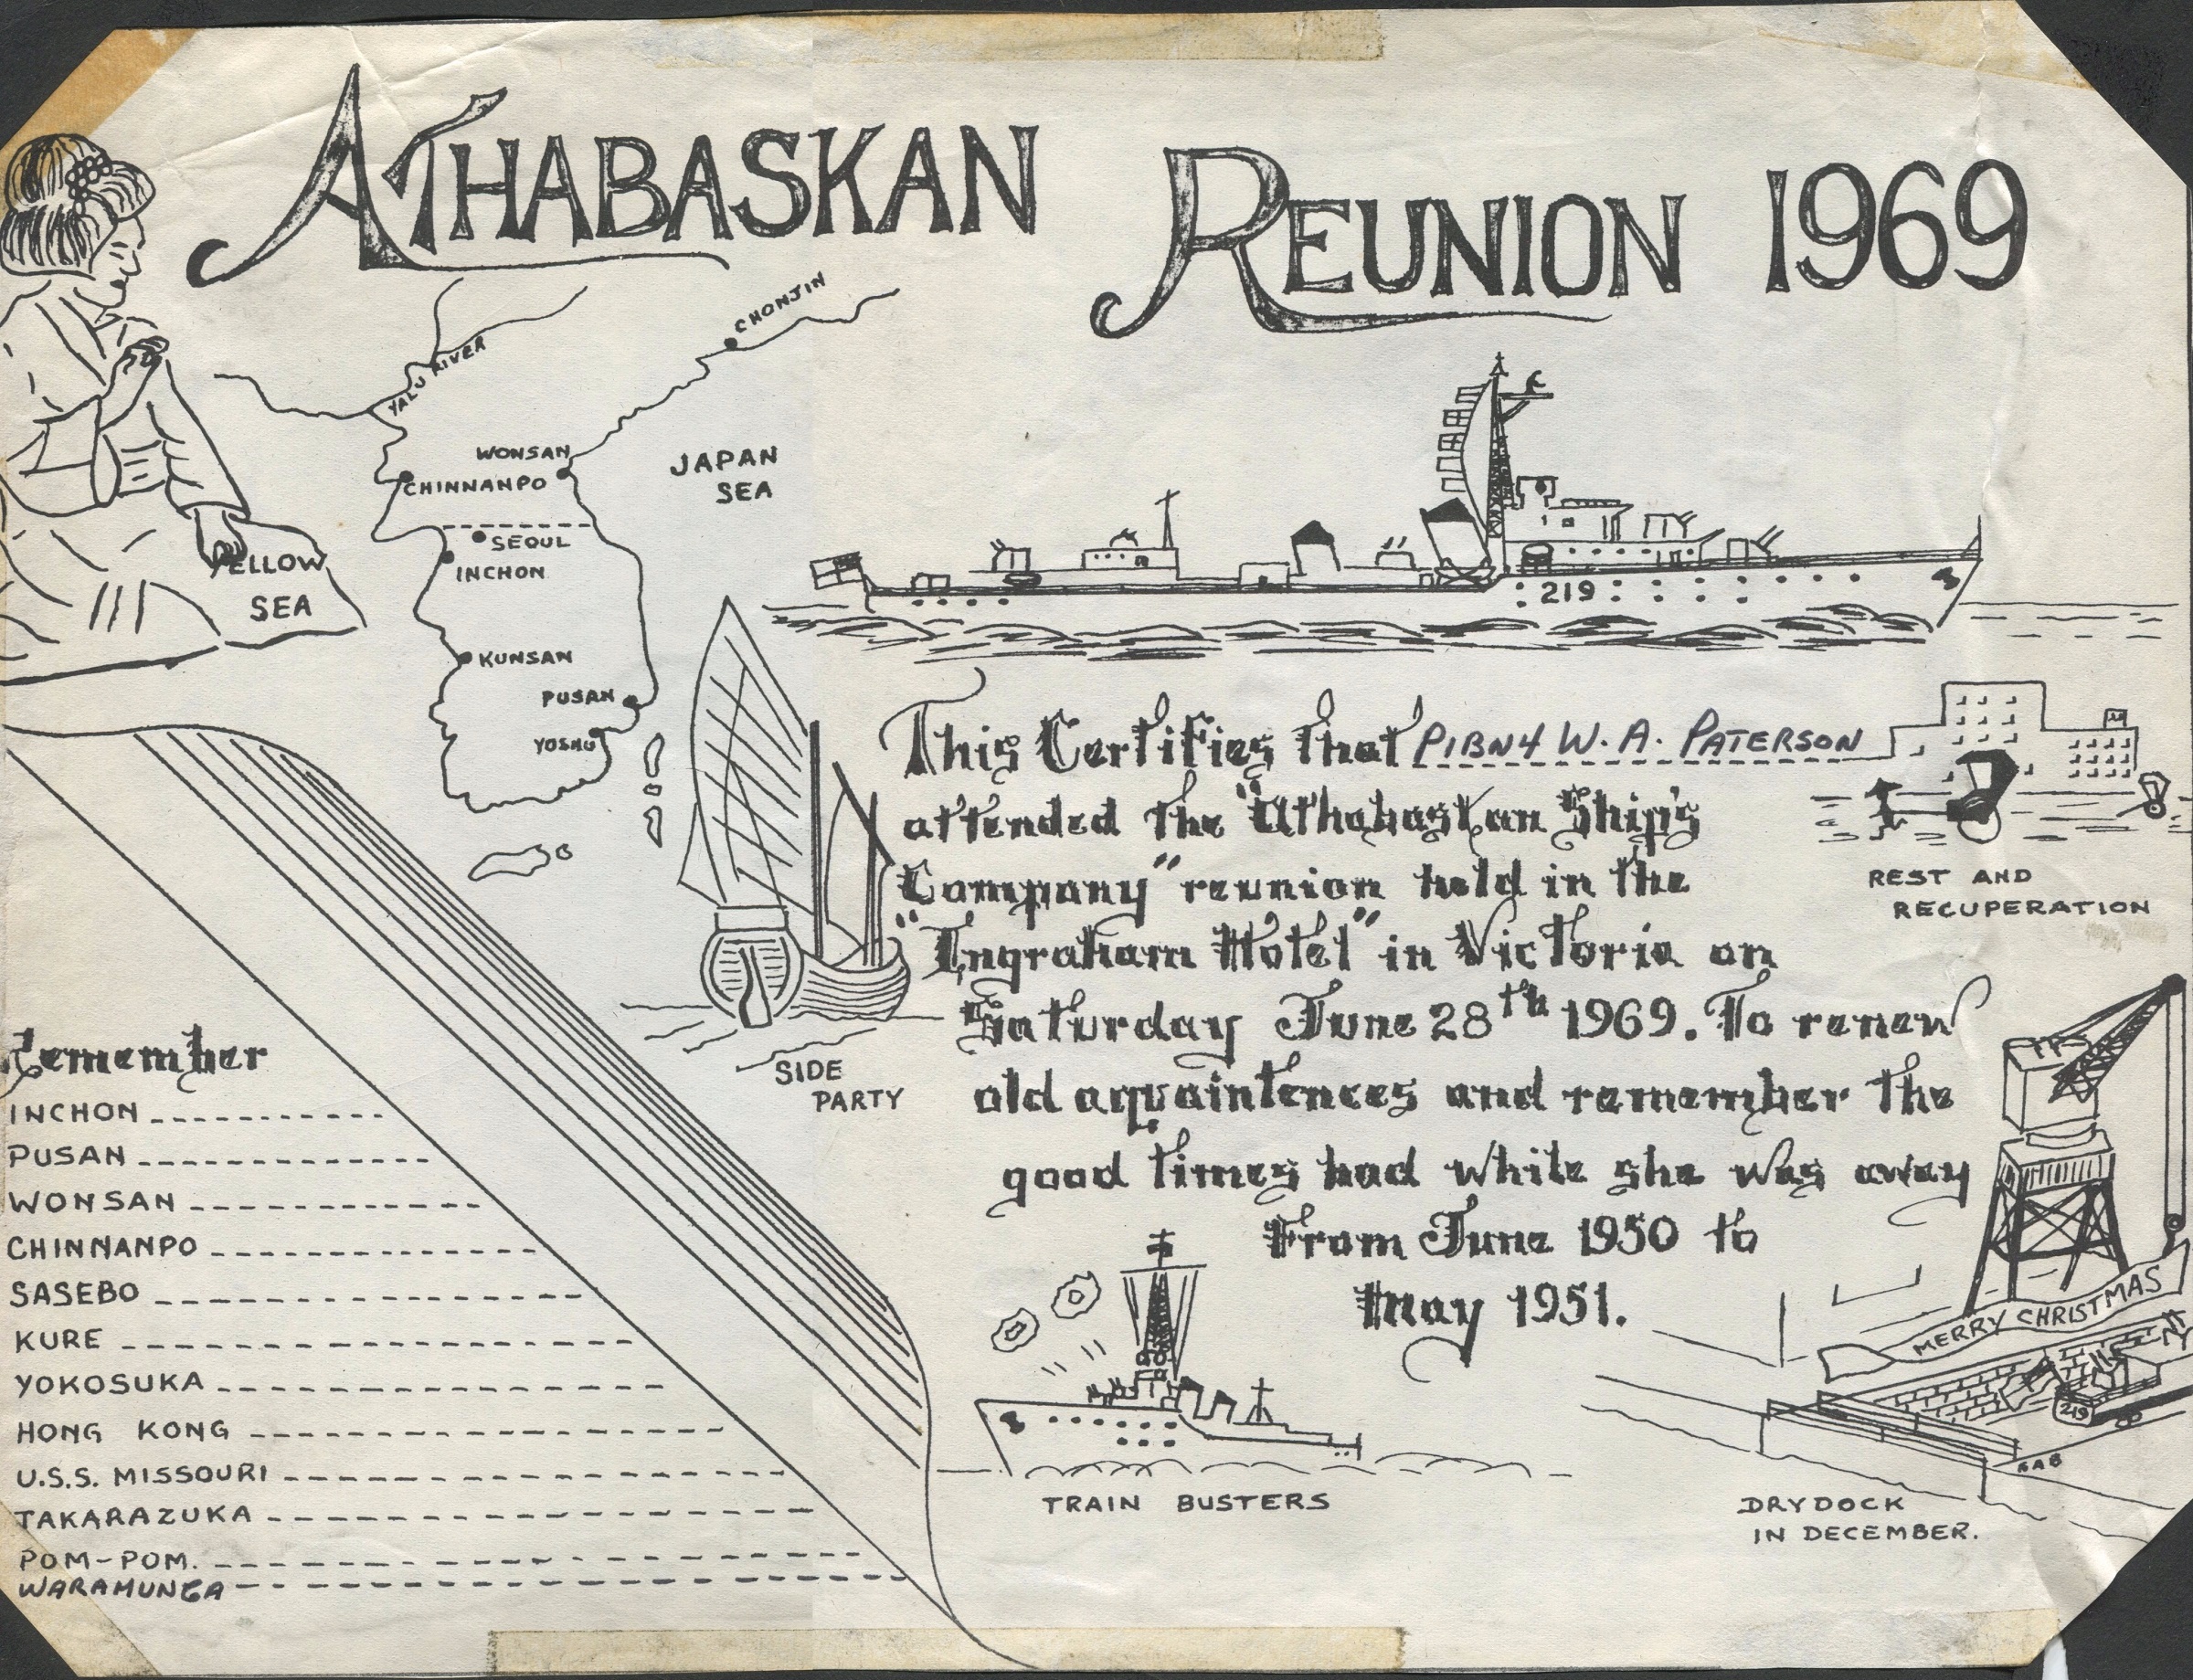 ATHABASKAN REUNION 1969
CHONJIN
YALU RIVER
WONSAN
CHINNANPO
JAPAN
SEA
SEOUL
INCHON
YELLOW
SEA
KUNSAN
PUSAN
YOSHU
219
This Certifies that P1BN4 W. A. PATERSON
attended the "Athabaskan Ship's
Company" reunion held in the
"Ingraham Hotel" in Victoria on
Saturday June 28th 1969. To renew
old aquaintences and remember the
good times had while she was away
From June 1950 to
May 1951.
REST AND
RECUPERATION
SIDE
PARTY
Remember
INCHON
PUSAN
WONSAN
CHINNANPO
SASEBO
KURE
YOKOSUKA
HONG KONG
U.S.S. MISSOURI
TAKARAZUKA
POM-POM.
WARAMUNGA
TRAIN BUSTERS
MERRY CHRISTMAS
219
DRYDOCK
IN DECEMBER.